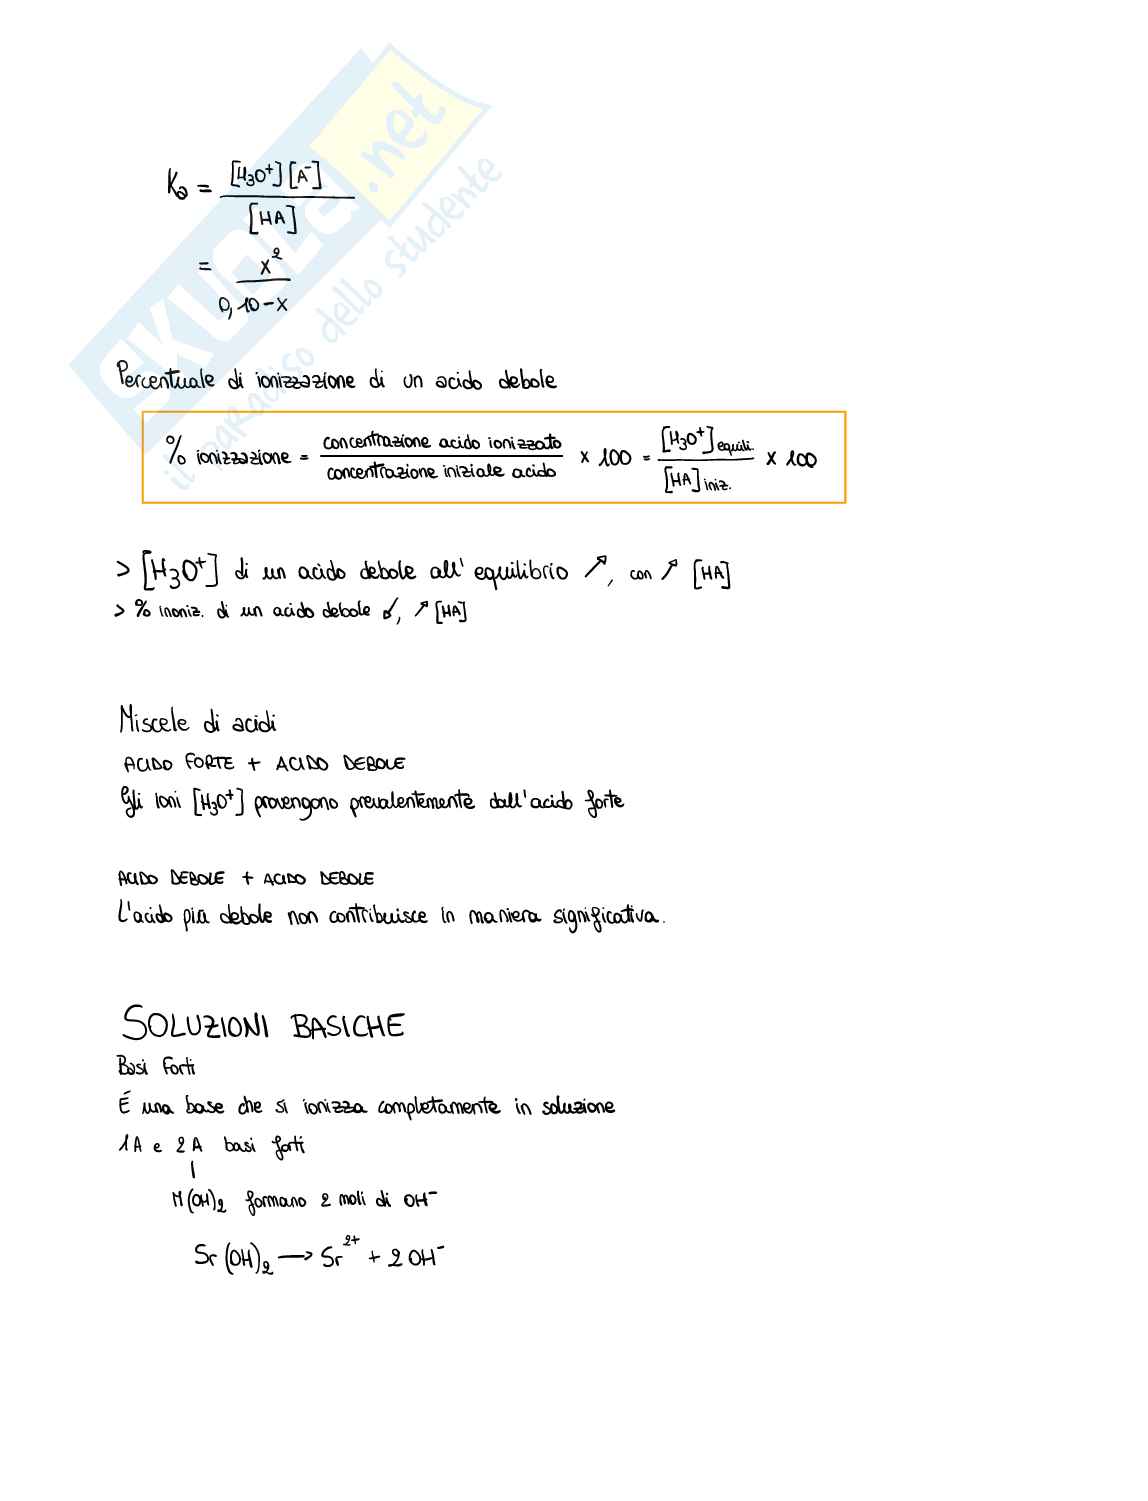 SKUOLA.net
il paradiso dello studente
Ka = [H₃O⁺][A⁻] / [HA]
= x² / 0,10-x
Percentuale di ionizzazione di un acido debole
% ionizzazione = concentrazione acido ionizzato / concentrazione iniziale acido x 100 = [H₃O⁺] equili. / [HA] iniz. x 100
> [H₃O⁺] di un acido debole all'equilibrio ↗, con ↗ [HA]
> % inoniz. di un acido debole ↙, ↗ [HA]
Miscele di acidi
ACIDO FORTE + ACIDO DEBOLE
Gli ioni [H₃O⁺] provengono prevalentemente dall'acido forte
ACIDO DEBOLE + ACIDO DEBOLE
L'acido più debole non contribuisce in maniera significativa.
SOLUZIONI BASICHE
Basi Forti
É una base che si ionizza completamente in soluzione
1A e 2A basi forti
|
M(OH)₂ formano 2 moli di OH⁻
Sr(OH)₂ → Sr²⁺ + 2OH⁻